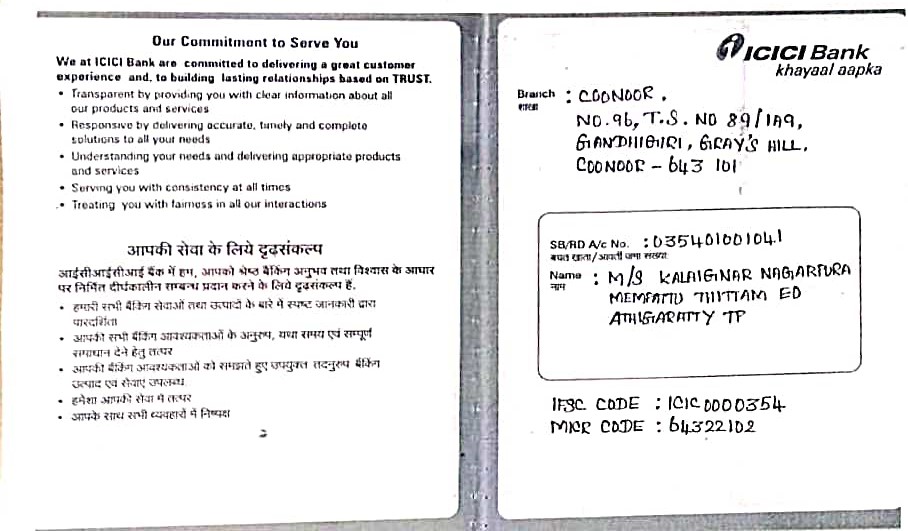 Our Commitment to Serve You
We at ICICI Bank are committed to delivering a great customer
experience and, to building lasting relationships based on TRUST.
• Transparent by providing you with clear information about all
our products and services
• Responsive by delivering accurate, timely and complete
solutions to all your needs
• Understanding your needs and delivering appropriate products
and services
• Serving you with consistency at all times
• Treating you with fairness in all our interactions
आपकी सेवा के लिये दृढ़संकल्प
आईसीआईसीआई बैंक में हम, आपको श्रेष्ठ बैंकिंग अनुभव तथा विश्वास के आधार
पर निर्मित दीर्घकालीन सम्बन्ध प्रदान करने के लिये दृढ़संकल्प हैं.
• हमारी सभी बैंकिंग सेवाओं तथा उत्पादों के बारे में स्पष्ट जानकारी द्वारा
पारदर्शिता
• आपकी सभी बैंकिंग आवश्यकताओं के अनुरुप, यथा समय एवं सम्पूर्ण
समाधान देने हेतु तत्पर
• आपकी बैंकिंग आवश्यकताओं को समझते हुए उपयुक्त तदनुरुप बैंकिंग
उत्पाद एवं सेवाए उपलब्ध
• हमेशा आपकी सेवा में तत्पर
• आपके साथ सभी व्यवहारों में निष्पक्ष
ICICI Bank
khayaal aapka
Branch : COONOOR,
शाखा
NO.96, T.S. NO 89/1A9,
GANDHIGIRI, GRAY'S HILL,
COONOOR - 643 101
SB/RD A/c No. : 035401001041
बचत खाता/आवर्ती जमा संख्या
Name : M/S KALAIGNAR NAGARPURA
नाम
MEMPATTU THITTAM EO
ATHIGARATTY TP
IFSC CODE : ICIC0000354
MICR CODE : 64322102